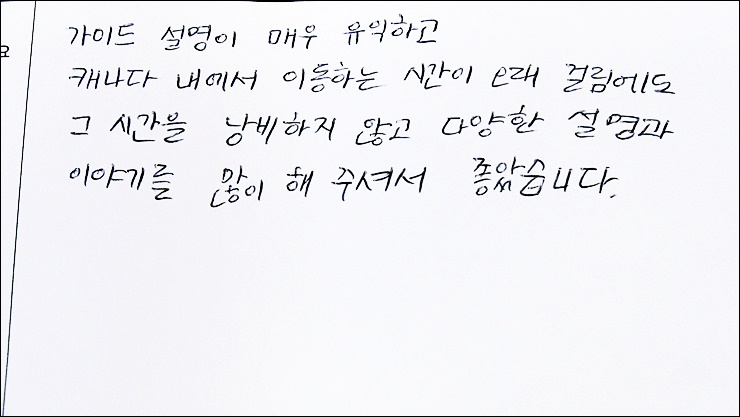 가이드 설명이 매우 유익하고
캐나다 내에서 이동하는 시간이 오래 걸림에도
그 시간을 낭비하지 않고 다양한 설명과
이야기를 많이 해 주셔서 좋았습니다.